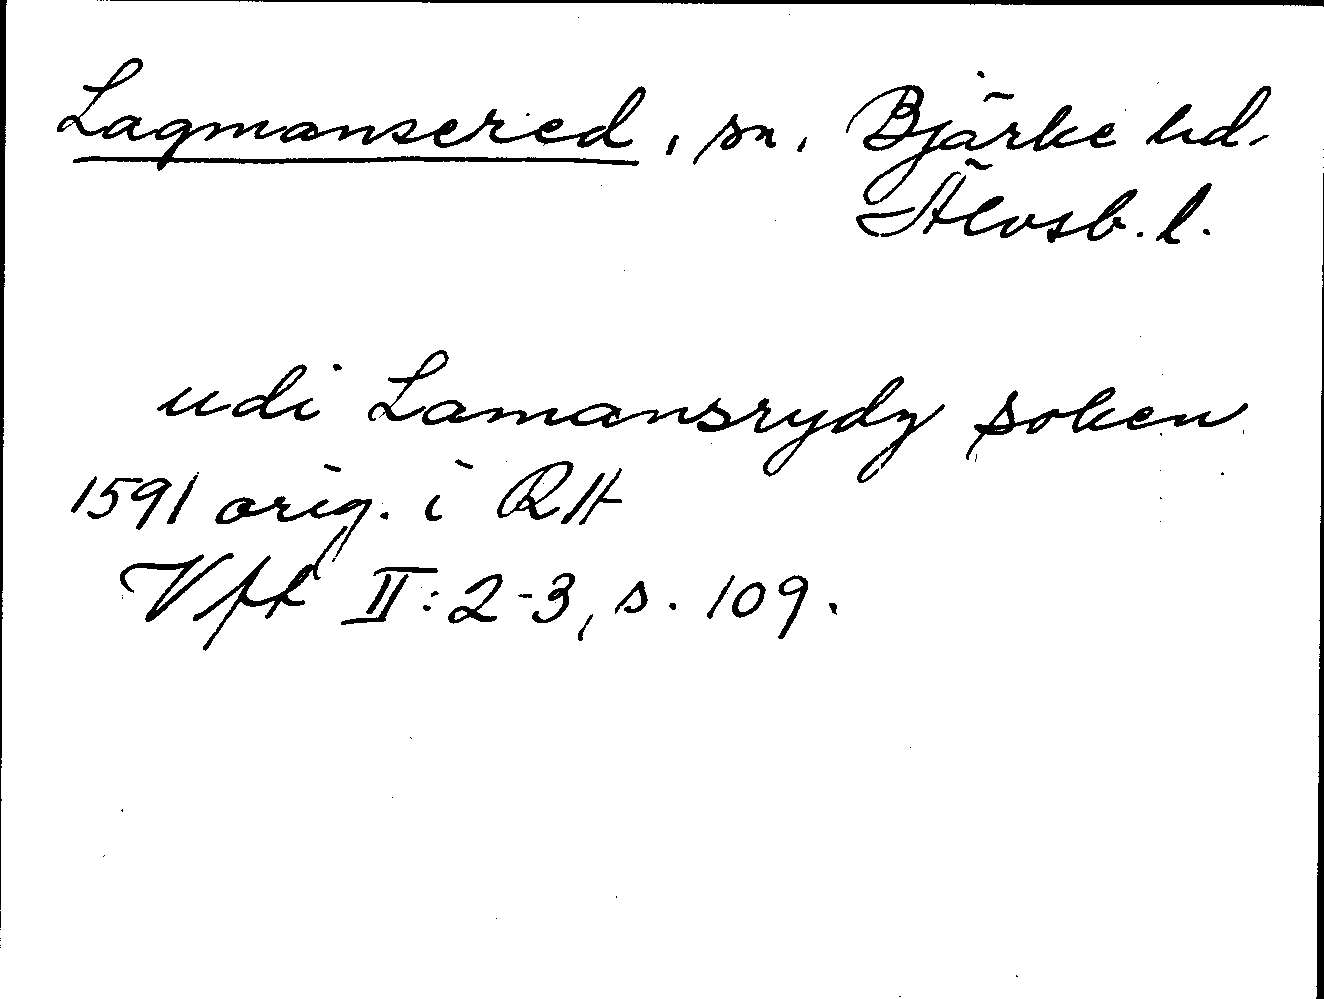 Lagmansered, sn, Bjärke hd,
Älvsb. l.
udi Lamansrydy soken
1591 orig. i RH
Vfft II: 2-3, s. 109.